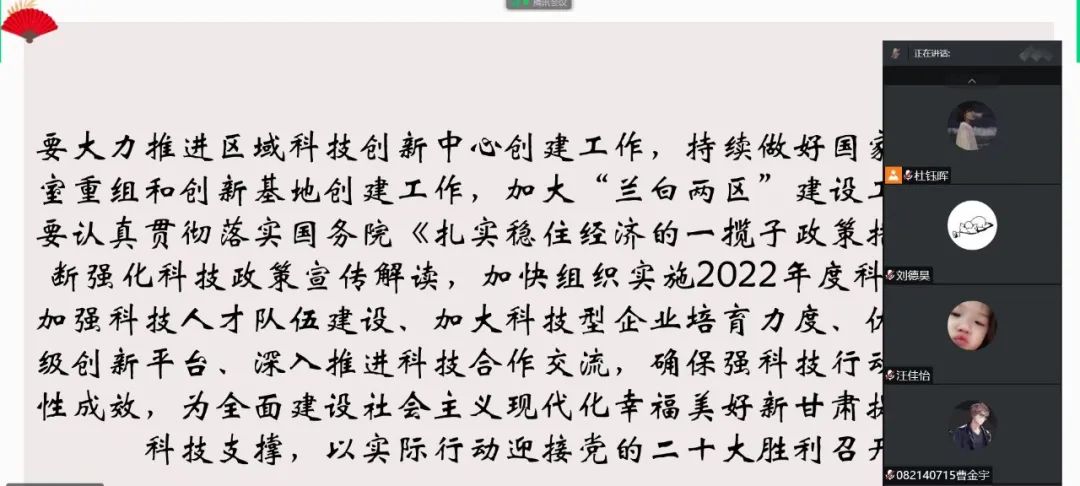 腾讯会议
要大力推进区域科技创新中心创建工作，持续做好国家
室重组和创新基地创建工作，加大“兰白两区”建设工
要认真贯彻落实国务院《扎实稳住经济的一揽子政策措
断强化科技政策宣传解读，加快组织实施2022年度科
加强科技人才队伍建设、加大科技型企业培育力度、优
级创新平台、深入推进科技合作交流，确保强科技行动
性成效，为全面建设社会主义现代化幸福美好新甘肃提
科技支撑，以实际行动迎接党的二十大胜利召开
正在讲话:
杜钰晖
刘德昊
汪佳怡
082140715曹金宇